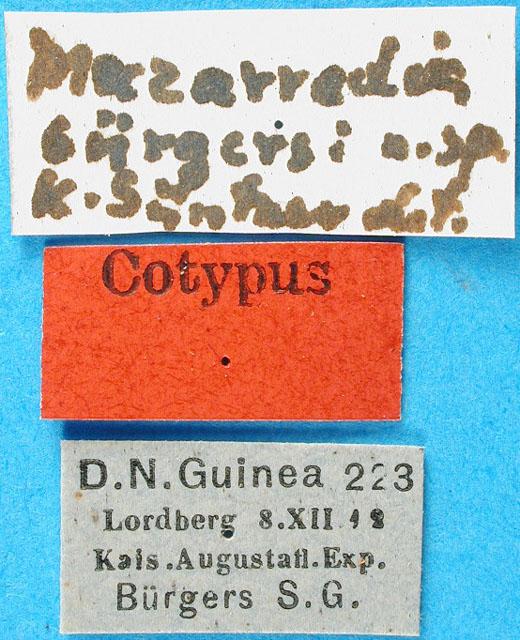 Mezarredia
bürgersi n. sp
K. Günther det.
Cotypus
D.N.Guinea 223
Lordberg 8.XII.12
Kais.Augustafl.Exp.
Bürgers S.G.